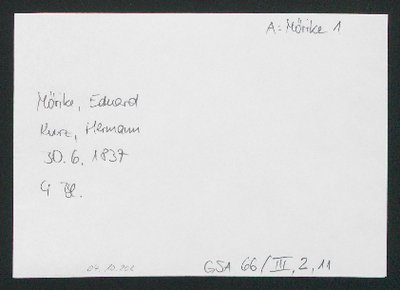 A: Mörike 1
Mörike, Eduard
Kurz, Hermann
30.6.1837
4 Bl.
GSA 66/III, 2, 11